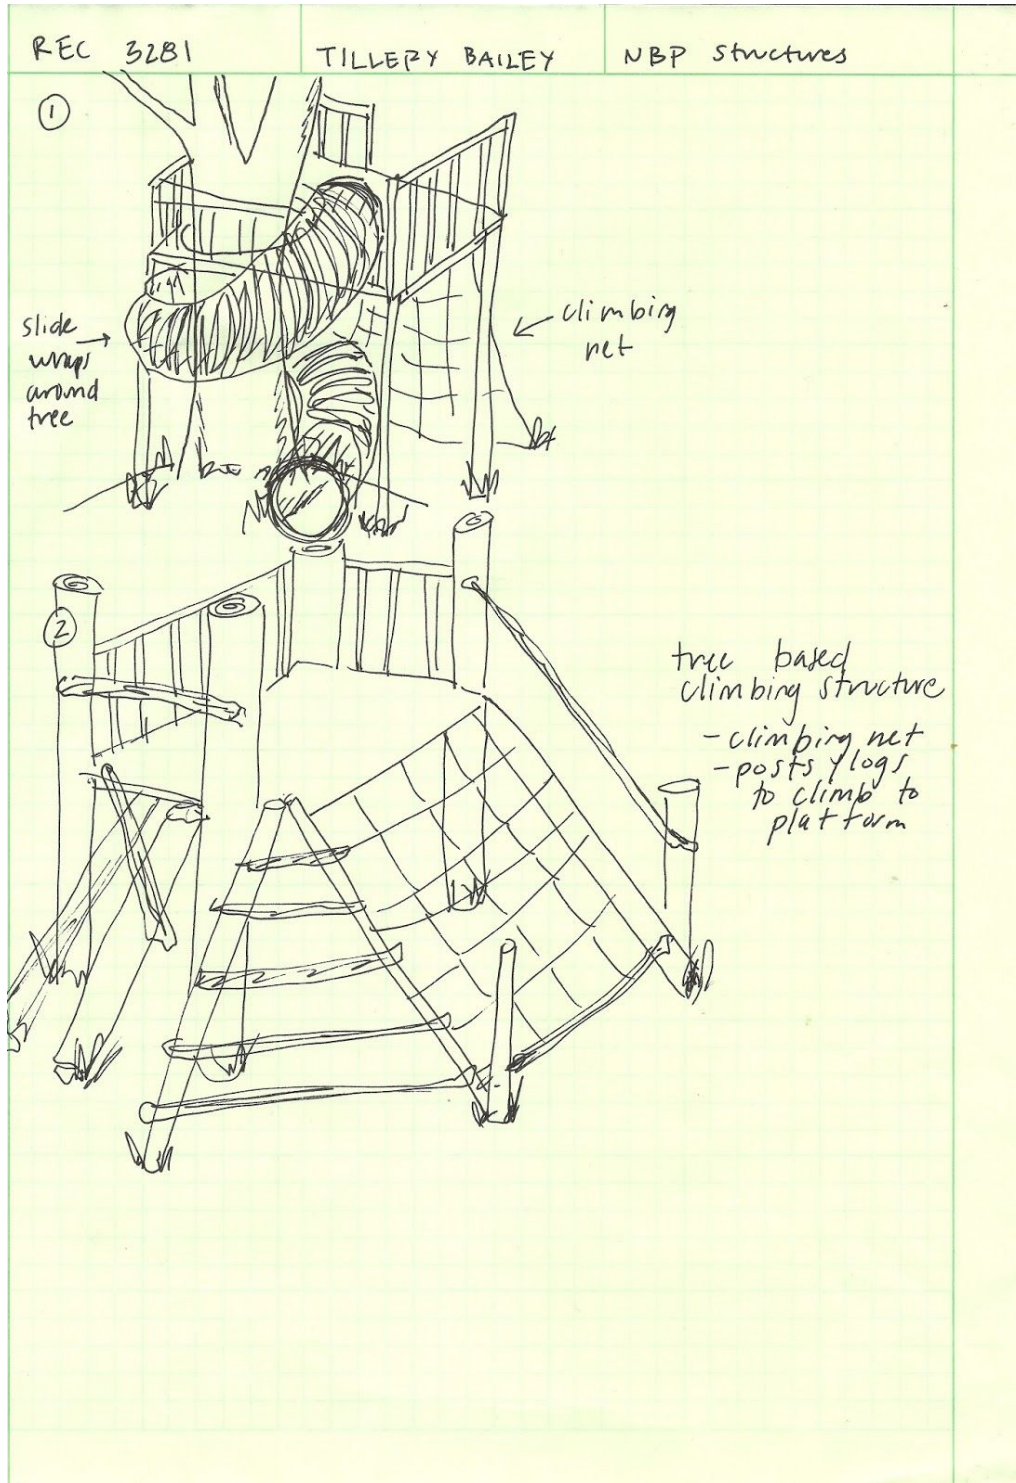 REC 3281
TILLERY BAILEY
NBP structures
1
slide
wraps
around
tree
climbing
net
2
tree based
climbing structure
- climbing net
- posts y logs
to climb to
platform